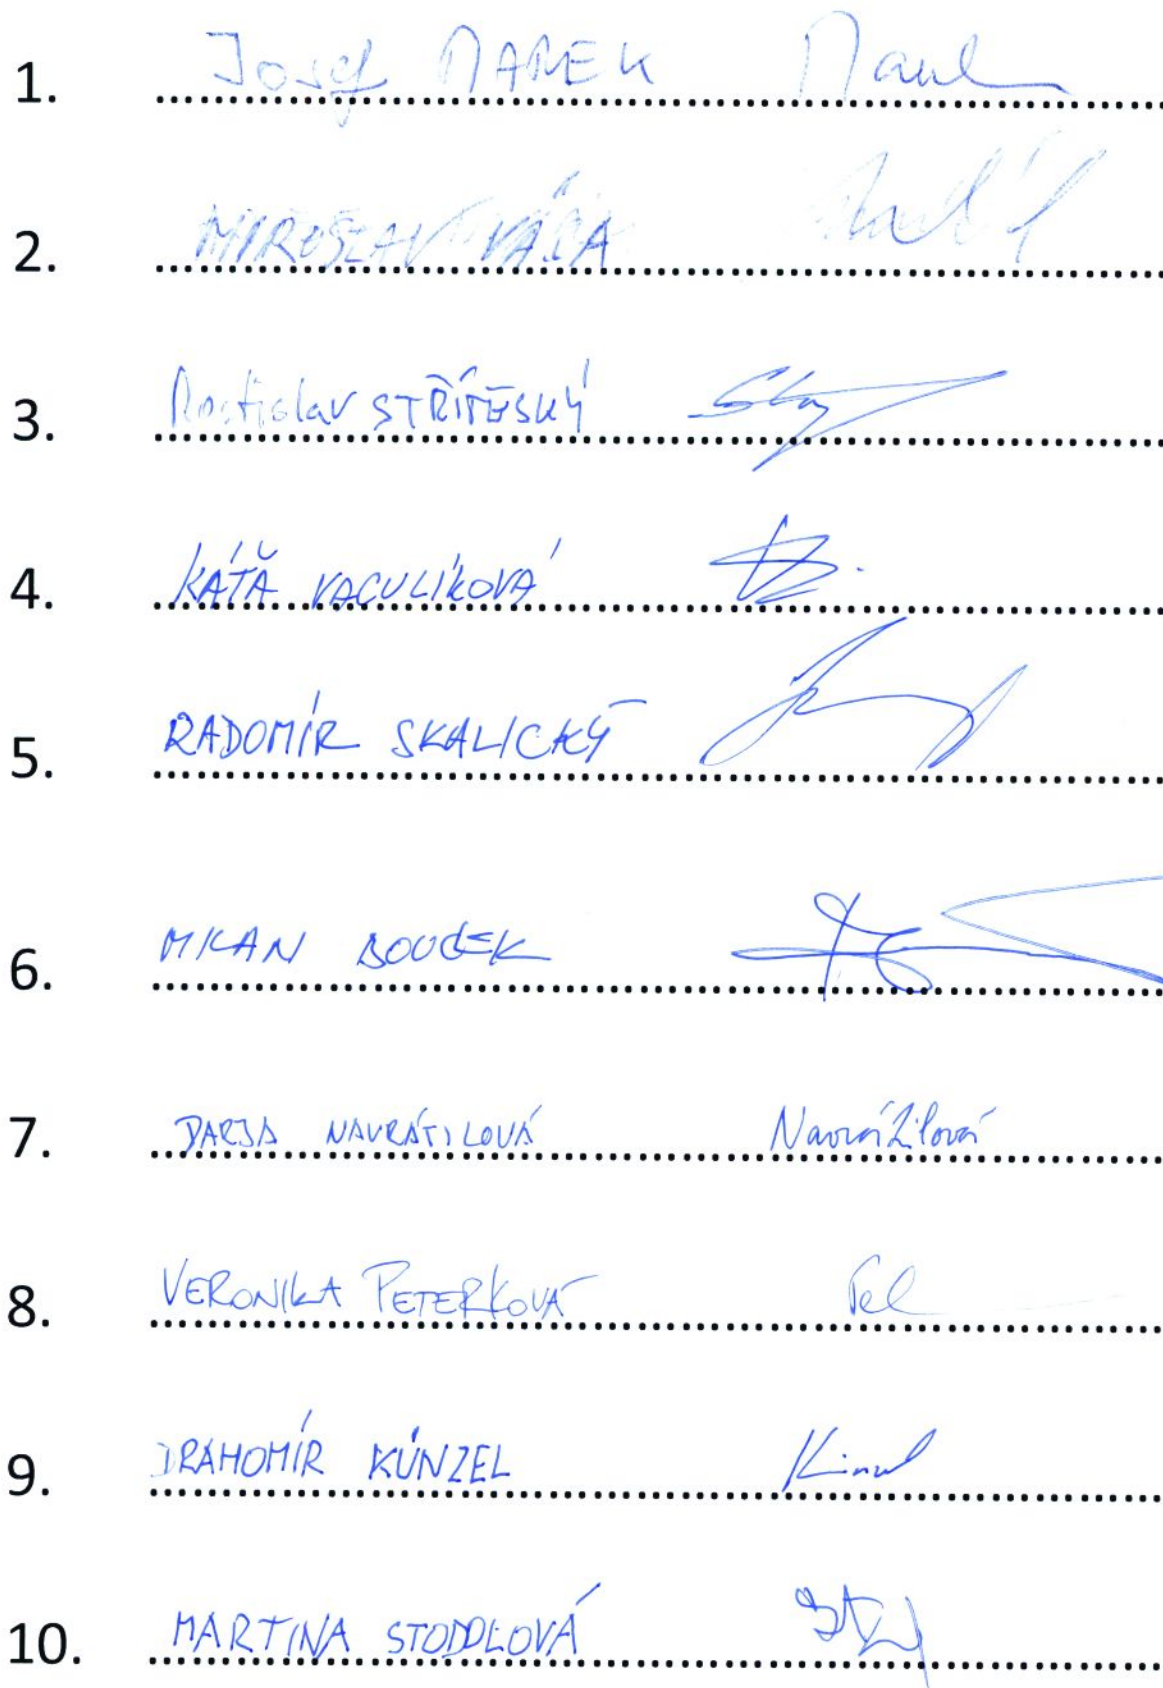 1. Josef MAREK
2. MIROSLAV VÁCA
3. Rostislav STŘÍTESKÝ
4. KÁŤA VACULÍKOVÁ
5. RADOMÍR SKALICKÝ
6. MILAN BOUČEK
7. DARJA NAVRÁTILOVÁ Navrátilová
8. VERONIKA PETERKOVÁ
9. DRAHOMÍR KÜNZEL
10. MARTINA STODOLOVÁ